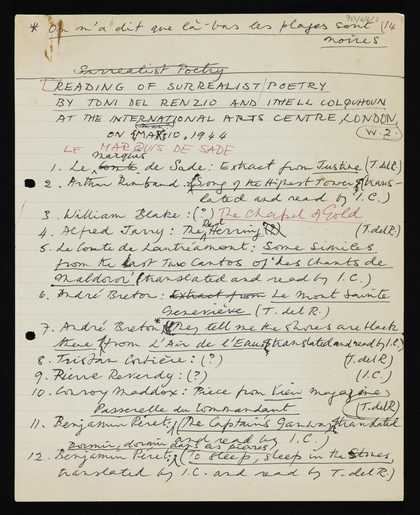 * On m'a dit que là-bas les plages sont (14
noires
Surrealist Poetry
READING OF SURREALIST POETRY
BY TONI DEL RENZIO AND ITHELL COLQUHOUN
AT THE INTERNATIONAL ARTS CENTRE, LONDON,
ON MAR 10, 1944 (W.2.)
LE MARQUIS DE SADE
marquis
1. Le Comte de Sade: Extract from Justine (T. del R.)
2. Arthur Rimbaud: (Song of the Highest Tower) (trans-
lated and read by I.C.)
3. William Blake: (?) The Chapel of Gold
4. Alfred Jarry: The Herring (?) (T. del R.)
5. Le Comte de Lautréamont: Some Similes
from the last Two Cantos of 'Les Chants de
Maldoror' (translated and read by I.C.)
6. André Breton: Extract from Le Mont Sainte
Geneviève (T. del R.)
7. André Breton: * (They tell me the shores are black
there) (from L'Air de l'Eau) (translated and read by I.C.)
8. Tristan Corbière: (?) (T. del R.)
9. Pierre Reverdy: (?) (I.C.)
10. Conroy Maddox: Piece from View magazine
Passerelle du Commandant (T. del R.)
11. Benjamin Péret: (The Captain's Gangway) (translated
and read by I.C.)
Dormir, dormir dans les
12. Benjamin Péret: (To sleep, sleep in the stones,
translated by I.C. and read by T. del R.)